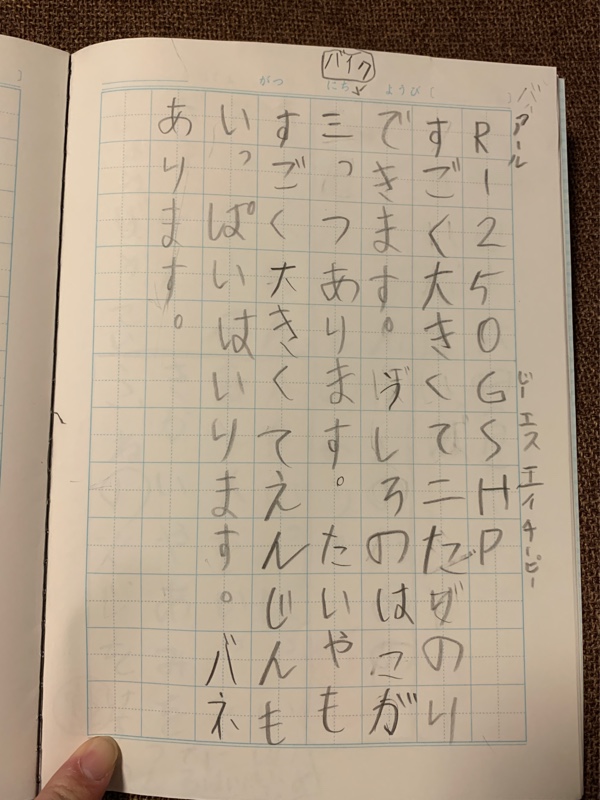 バイク
がつ にち ようび( )
R1250GSHP
アール
ジーエスエイチーピー
すごく大きくて二だ のり
できます。 しろのはこが
三っつあります。たいやも
すごく大きくてえんじんも
いっぱいはいります。バネ
あります。